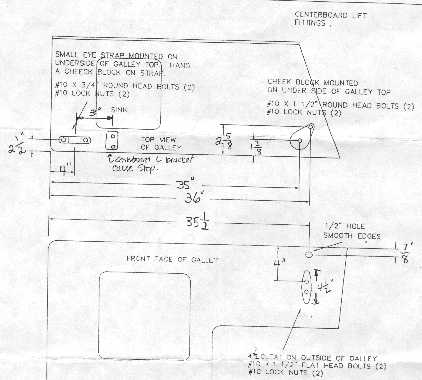 CENTERBOARD LIFT
FITTINGS
SMALL EYE STRAP MOUNTED ON
UNDERSIDE OF GALLEY TOP, HANG
A CHEEK BLOCK ON STRAP.
#10 X 3/4" ROUND HEAD BOLTS (2)
#10 LOCK NUTS (2)
CHEEK BLOCK MOUNTED
ON UNDER SIDE OF GALLEY TOP
#10 X 1 1/2" ROUND HEAD BOLTS (2)
#10 LOCK NUTS (2)
3"
SINK
TOP VIEW
OF GALLEY
2 1/2"
2 5/8
4"
35"
36"
35 1/2
1/2" HOLE
SMOOTH EDGES
FRONT FACE OF GALLEY
4"
4 1/2"
1 7/8"
ON OUTSIDE OF GALLEY
#10 X 1 1/2" FLAT HEAD BOLTS (2)
#10 LOCK NUTS (2)